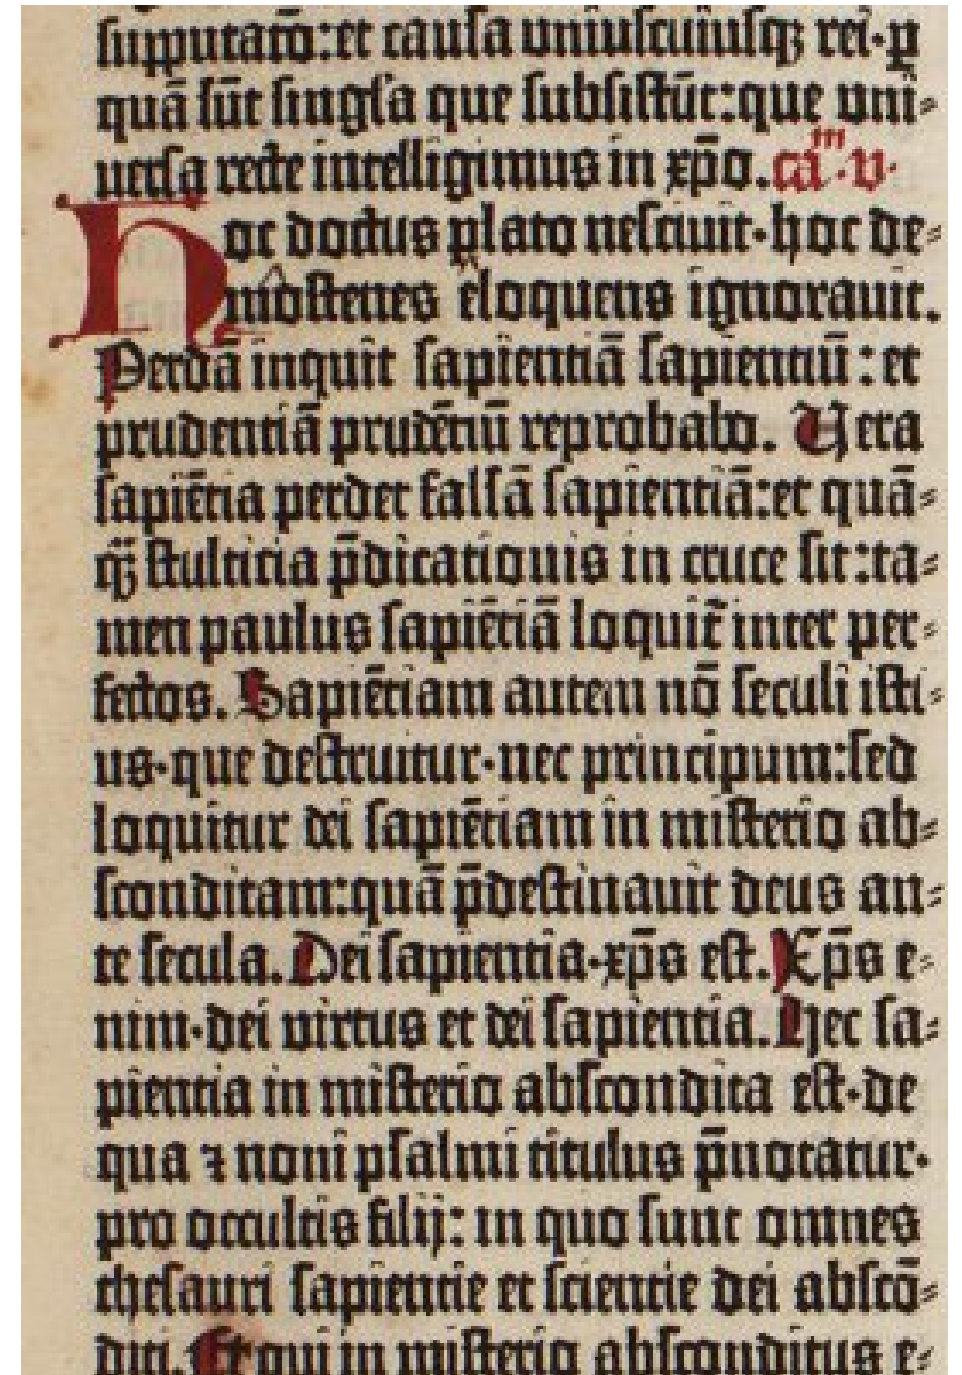 supputatō:et causa uniuscuiusqꝫ rei·ꝑ
quā sūt singl'a que subsistūt:que uni⸗
uersa recte intelligimus in xp̄o. ca᷃ᵐ·v·
Hoc doctus plato nesciuit·hoc de⸗
mōstenes eloquens ignorauit.
Perdā inquit sapientiā sapientiū:et
prudentiā prudētiū reprobabo. Vera
sapiētia perdet falsā sapientiā:et quā⸗
qꝫ̄ stulticia p̄dicationis in cruce sit:ta⸗
men paulus sapiētiā loquit᷑ inter per⸗
fectos. Sapiētiam autem nō seculi isti⸗
us·que destruitur·nec principum:sed
loquitur dei sapiētiam in misterio ab⸗
sconditam:quā p̄destinauit deus an⸗
te secula. Dei sapientia·xp̄s est. Xp̄s e⸗
nim·dei uirtus et dei sapientia. Hec sa⸗
pientia in misterio abscondita est·de
qua ⁊ noni psalmi titulus p̄notatur·
pro occultis filij: in quo sunt omnes
thesauri sapientie et scientie dei abscō⸗
diti. Et qui in misterio absconditus e⸗